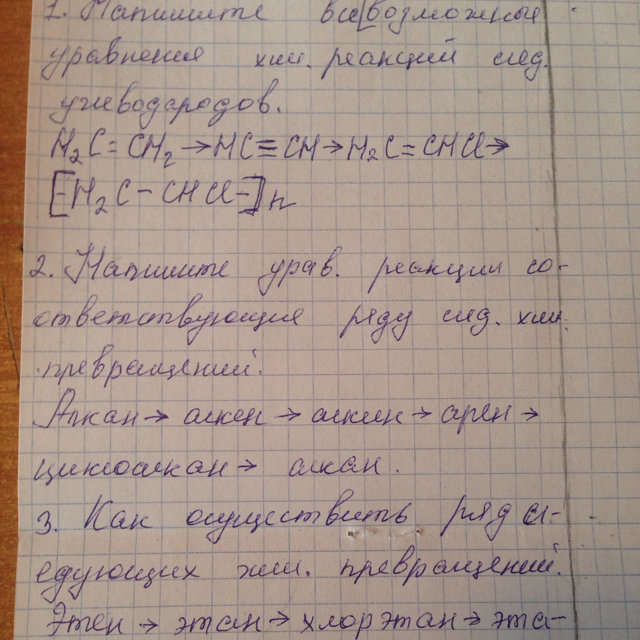 1. Напишите все возможные
уравнения хим. реакций след.
углеводородов.
H₂C=CH₂→HC≡CH→H₂C=CHCl→
[-H₂C-CHCl-]n
2. Напишите урав. реакции со-
ответствующие ряду след. хим.
превращений.
Алкан→ алкен → алкин → арен →
циклоалкан → алкан.
3. Как осуществить ряд сл-
едующих хим. превращений.
Этен → этан → хлорэтан → эта-